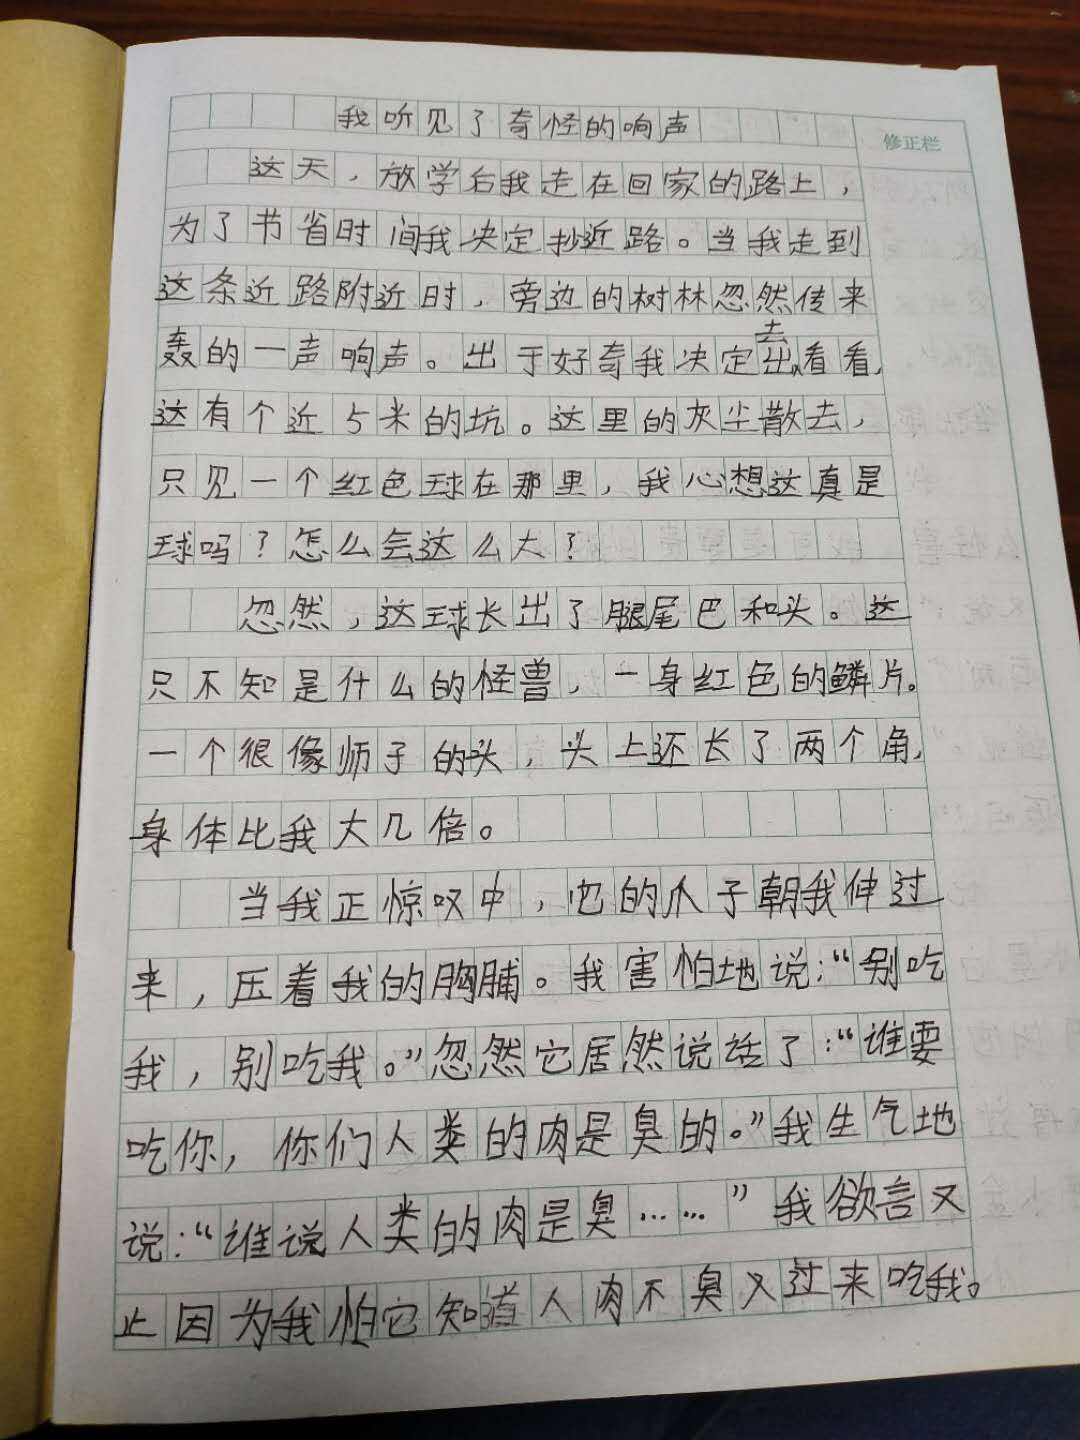 我听见了奇怪的响声
修正栏
这天，放学后我走在回家的路上，
为了节省时间我决定抄近路。当我走到
这条近路附近时，旁边的树林忽然传来
轰的一声响声。出于好奇我决定出去看看，
这有个近5米的坑。这里的灰尘散去，
只见一个红色球在那里，我心想这真是
球吗？怎么会这么大？
忽然，这球长出了腿尾巴和头。这
只不知是什么的怪兽，一身红色的鳞片。
一个很像师子的头，头上还长了两个角，
身体比我大几倍。
当我正惊叹中，它的爪子朝我伸过
来，压着我的胸脯。我害怕地说：“别吃
我，别吃我。”忽然它居然说话了：“谁要
吃你，你们人类的肉是臭的。”我生气地
说：“谁说人类的肉是臭……”我欲言又
止因为我怕它知道人肉不臭又过来吃我。